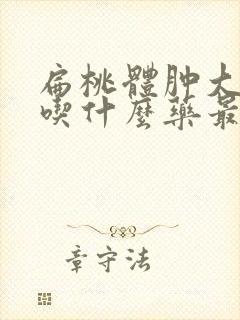 扁桃體肿大
喫什麼藥最
章守法